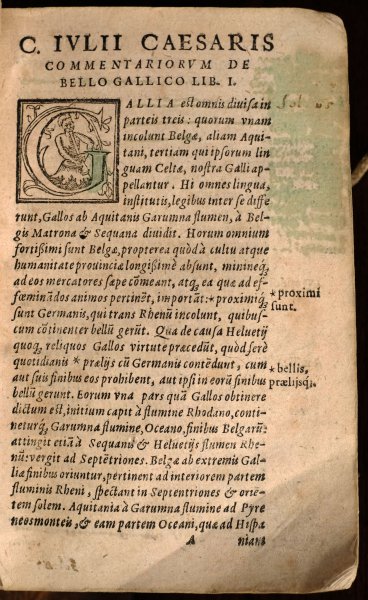 C. IVLII CAESARIS
COMMENTARIORVM DE
BELLO GALLICO LIB. I.
GALLIA est omnis diuisa in
parteis treis: quorum vnam
incolunt Belgæ, aliam Aqui-
tani, tertiam qui ipsorum lin
guam Celtæ, nostra Galli ap-
pellantur. Hi omnes lingua,
institutis, legibus inter se diffe
runt, Gallos ab Aquitanis Garumna flumen, à Bel-
gis Matrona & Sequana diuidit. Horum omnium
fortißimi sunt Belgæ, propterea quòd à cultu atque
humanitate prouinciæ longißimè absunt, mininéq́;
ad eos mercatores sæpe cōmeant, atq́; ea quæ ad ef-
fœminādos animos pertinēt, important: * proximiq́;
sunt Germanis, qui trans Rhenū incolunt, quibus-
cum cōtinenter bellū gerūt. Qua de causa Heluetij
quoq́; reliquos Gallos virtute præcedūt, quòd ferè
quotidianis * prælijs cū Germanis contēdunt, cum
aut suis finibus eos prohibent, aut ipsi in eorū finibus
bellū gerunt. Eorum vna pars quā Gallos obtinere
dictum est, initium capit à flumine Rhodano, conti-
neturq́; Garumna flumine, Oceano, finibus Belgarū:
attingit etiā à Sequanis & Heluetijs flumen Rhe-
nū: vergit ad Septētriones. Belgæ ab extremis Gal-
liæ finibus oriuntur, pertinent ad interiorem partem
fluminis Rheni, spectant in Septentriones & oriē-
tem solem. Aquitania à Garumna flumine ad Pyre
neos monteis, & eam partem Oceani, quæ ad Hispa
A niam
* proximi
sunt.
* bellis,
prælijsq́;